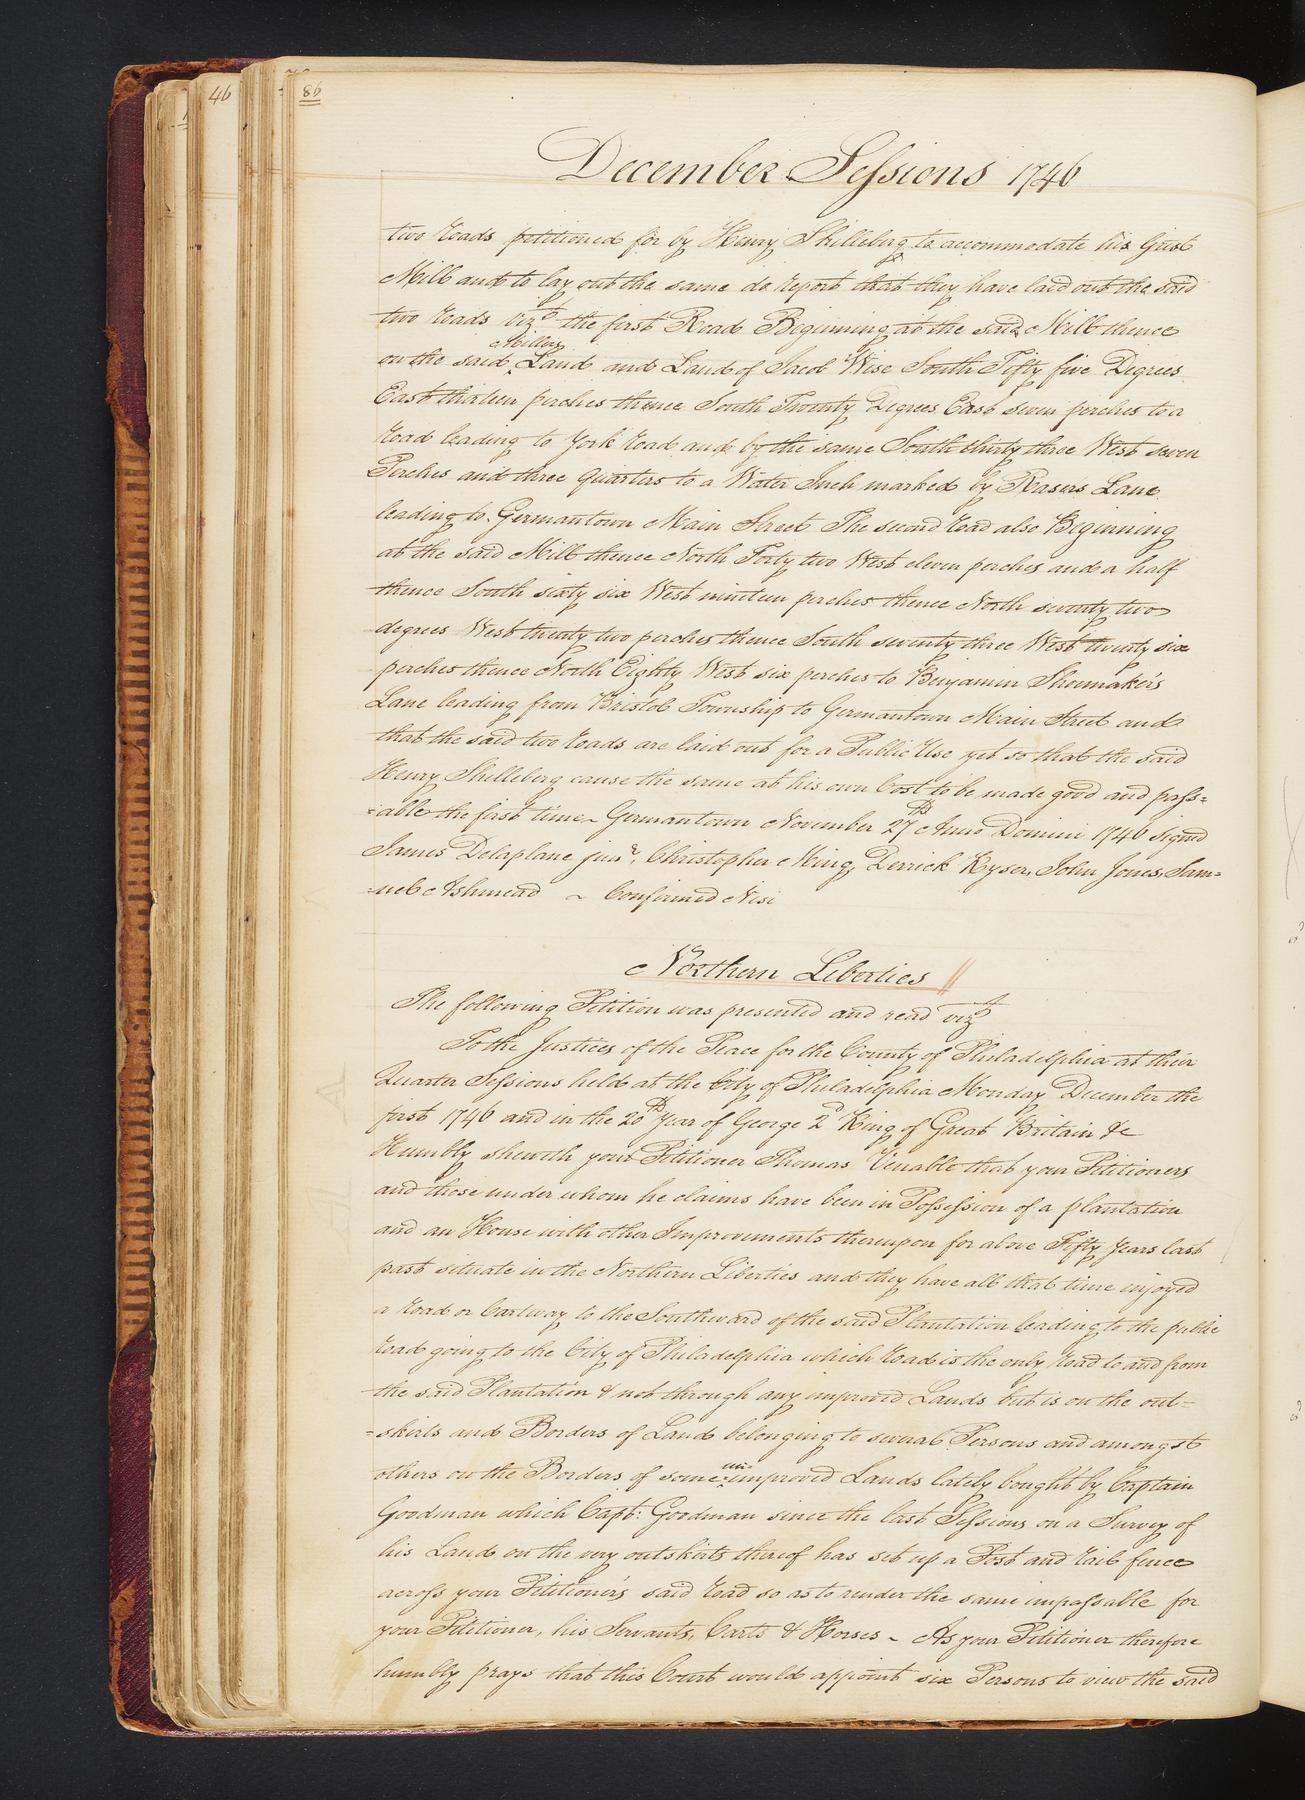 46
86
December Sessions 1746
two roads petitioned for by Henry Shilleberg to accommodate his Grist
Mill and to lay out the same do report that they have laid out the said
two roads vizt the first Road Beginning at the said Mill thence
Millers
on the said Land and Land of Jacob Wise South Fifty five Degrees
East thirteen perches thence South Twenty Degrees East seven perches to a
road leading to York road and by the same South thirty three West seven
Perches and three quarters to a Water Inch marked by Rasers Lane
leading to Germantown Main Street The second road also Beginning
at the said Mill thence North Forty two West eleven perches and a half
thence South sixty six West nineteen perches thence North seventy two
degrees West twenty two perches thence South seventy three West twenty six
perches thence North Eighty West six perches to Benjamin Shoemaker's
Lane leading from Bristol Township to Germantown Main Street and
that the said two roads are laid out for a Public Use yet so that the said
Henry Shilleberg cause the same at his own Cost to be made good and pass=
=able the first time ~ Germantown November 27th Anno Domini 1746 signed
James Delaplane junr, Christopher Ming, Derrick Kyser, John Jones, Sam=
=uel Ashmead ~ Confirmed Nisi
Northern Liberties
The following Petition was presented and read vizt
To the Justices of the Peace for the County of Philadelphia at their
Quarter Sessions held at the City of Philadelphia Monday December the
first 1746 and in the 20th Year of George 2d King of Great Britain &c
Humbly sheweth your Petitioner Thomas Venable that your Petitioners
and those under whom he claims have been in Possession of a plantation
and an House with other Improvements thereupon for above Fifty Years last
past situate in the Northern Liberties and they have all that time enjoyed
a road or Cartway to the Southward of the said Plantation leading to the public
road going to the City of Philadelphia which road is the only road to and from
the said Plantation & not through any improved Lands but is on the out=
=skirts and Borders of Land belonging to several Persons and amongst
un=
others on the Borders of some improved Lands lately bought by Captain
Goodman which Capt: Goodman since the last Sessions on a Survey of
his Land on the very outskirts thereof has set up a Post and rail fence
across your Petitioner's said road so as to render the same impassable for
your Petitioner, his Servants, Carts & Horses ~ As your Petitioner therefore
humbly prays that this Court would appoint six Persons to view the said